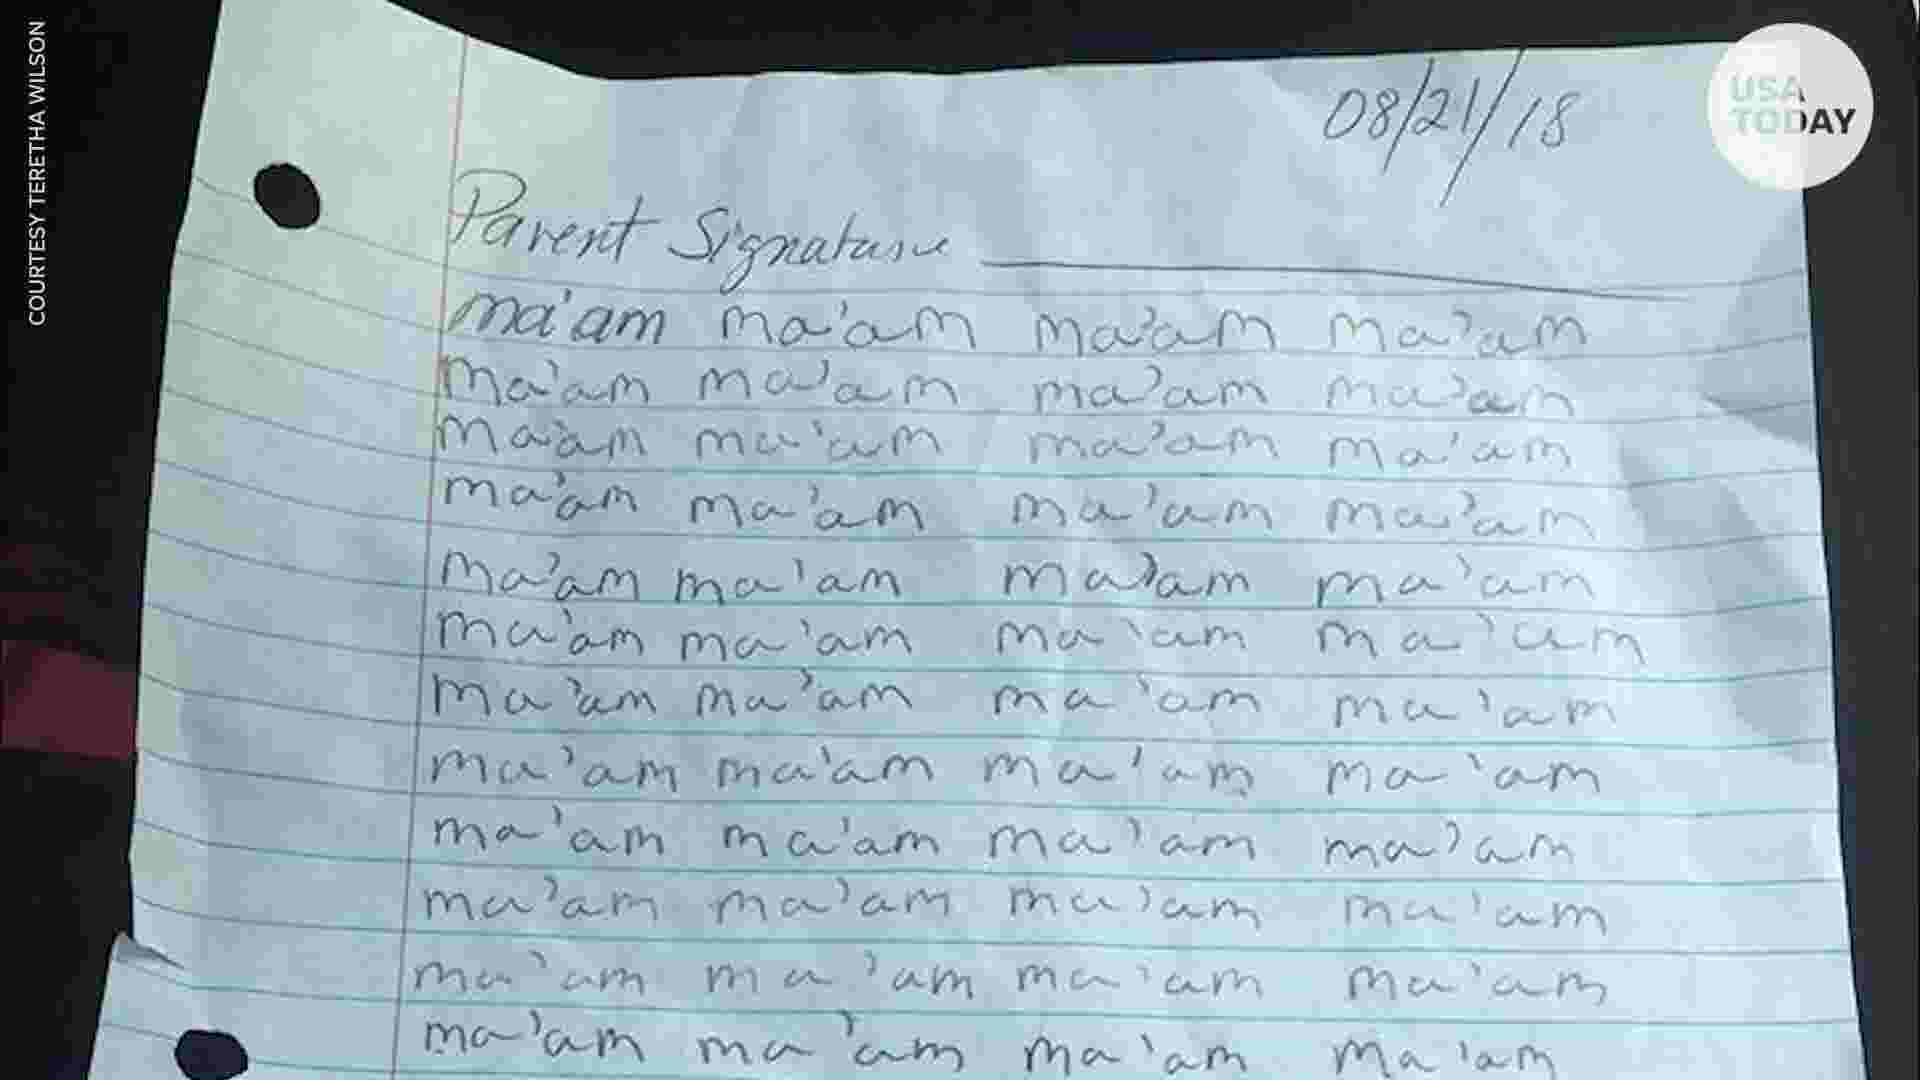 COURTESY TERETHA WILSON
USA
TODAY
08/21/18
Parent Signature
ma'am ma'am ma'am ma'am
ma'am ma'am ma'am ma'am
ma'am ma'am ma'am ma'am
ma'am ma'am ma'am ma'am
ma'am ma'am ma'am ma'am
ma'am ma'am ma'am ma'am
ma'am ma'am ma'am ma'am
ma'am ma'am ma'am ma'am
ma'am ma'am ma'am ma'am
ma'am ma'am ma'am ma'am
ma'am ma'am ma'am ma'am
ma'am ma'am ma'am ma'am